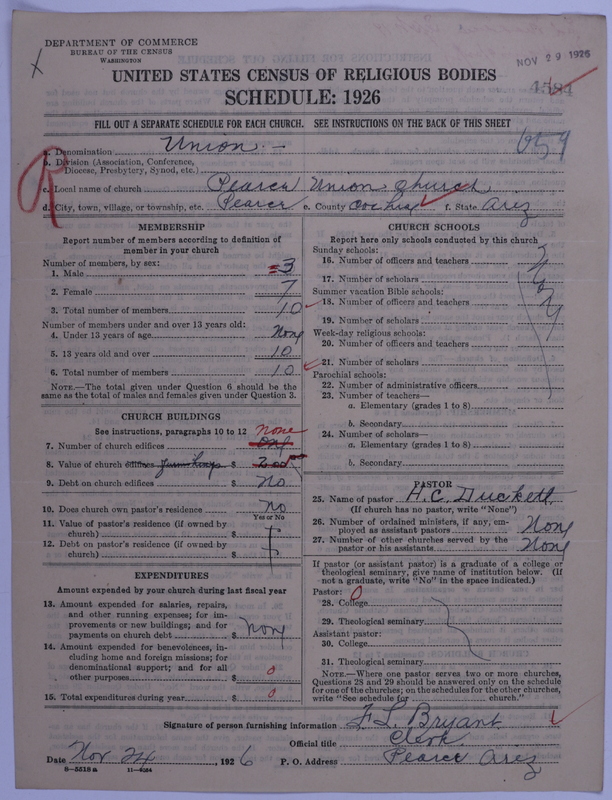 DEPARTMENT OF COMMERCE
BUREAU OF THE CENSUS
WASHINGTON
NOV 29 1926
UNITED STATES CENSUS OF RELIGIOUS BODIES
SCHEDULE: 1926
FILL OUT A SEPARATE SCHEDULE FOR EACH CHURCH. SEE INSTRUCTIONS ON THE BACK OF THIS SHEET
R
a. Denomination Union.—
b. Division (Association, Conference,
Diocese, Presbytery, Synod, etc.)
c. Local name of church Pearce Union Church
d. City, town, village, or township, etc. Pearce e. County Cochise f. State Ariz
MEMBERSHIP
Report number of members according to definition of
member in your church
Number of members, by sex:
1. Male 3
2. Female 7
3. Total number of members 10
Number of members under and over 13 years old:
4. Under 13 years of age None
5. 13 years old and over 10
6. Total number of members 10
NOTE.—The total given under Question 6 should be the
same as the total of males and females given under Question 3.
CHURCH BUILDINGS
See instructions, paragraphs 10 to 12 None
7. Number of church edifices one
8. Value of church edifices furnishings $ 200 00
9. Debt on church edifices $ No
10. Does church own pastor's residence No
Yes or No
11. Value of pastor's residence (if owned by
church) $
12. Debt on pastor's residence (if owned by
church) $
EXPENDITURES
Amount expended by your church during last fiscal year
13. Amount expended for salaries, repairs,
and other running expenses; for im-
provements or new buildings; and for
payments on church debt $ None
14. Amount expended for benevolences, in-
cluding home and foreign missions; for
denominational support; and for all
other purposes $ 0
15. Total expenditures during year $ 0
CHURCH SCHOOLS
Report here only schools conducted by this church
Sunday schools:
16. Number of officers and teachers
17. Number of scholars
Summer vacation Bible schools:
18. Number of officers and teachers
19. Number of scholars
Week-day religious schools:
20. Number of officers and teachers
21. Number of scholars
Parochial schools:
22. Number of administrative officers
23. Number of teachers—
a. Elementary (grades 1 to 8)
b. Secondary
24. Number of scholars—
a. Elementary (grades 1 to 8)
b. Secondary
PASTOR
25. Name of pastor H. C. Duckett
(If church has no pastor, write "None")
26. Number of ordained ministers, if any, em-
ployed as assistant pastors None
27. Number of other churches served by the
pastor or his assistants None
If pastor (or assistant pastor) is a graduate of a college or
theological seminary, give name of institution below. (If
not a graduate, write "No" in the space indicated.)
Pastor: 0
28. College
29. Theological seminary
Assistant pastor:
30. College
31. Theological seminary
NOTE.—Where one pastor serves two or more churches,
Questions 28 and 29 should be answered only on the schedule
for one of the churches; on the schedules for the other churches,
write "See schedule for church."
Signature of person furnishing information F L Bryant
Official title Clerk
Date Nov 24, 1926 P. O. Address Pearce Ariz
8—5518 a 11—8254